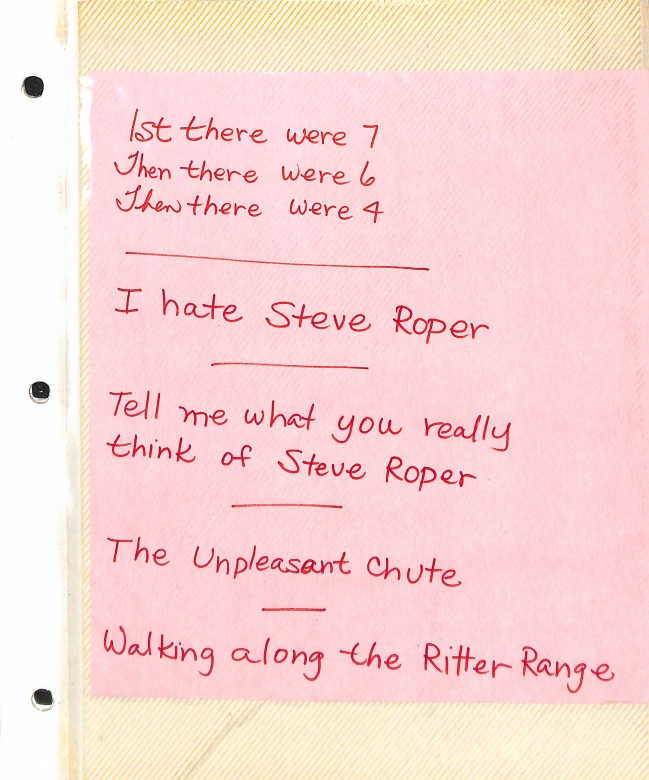 1st there were 7
Then there were 6
Then there were 4
I hate Steve Roper
Tell me what you really
think of Steve Roper
The Unpleasant Chute
Walking along the Ritter Range